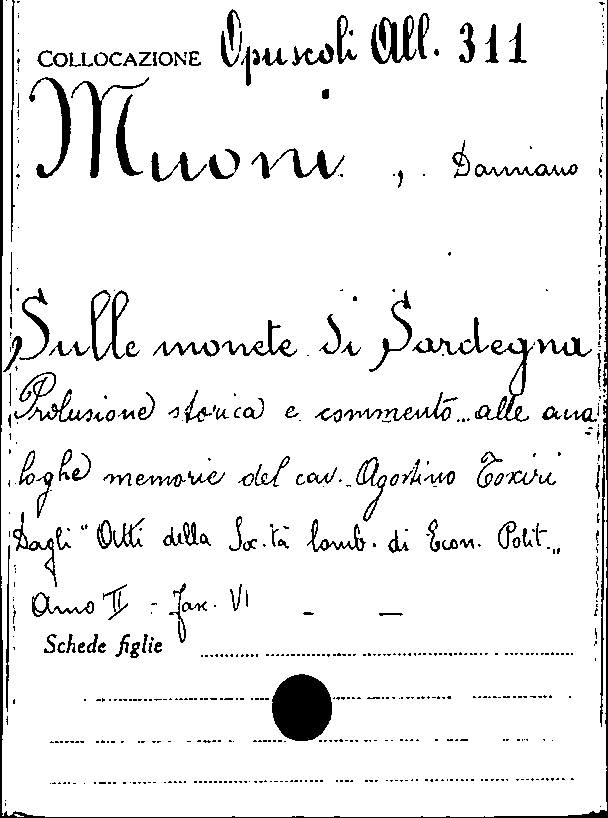 COLLOCAZIONE Opuscoli All. 311
Muoni, Damiano
Sulle monete di Sardegna
Prolusione storica e commento alle ana
loghe memorie del cav. Agostino Toxiri
Dagli "Atti della Soc.tà lomb. di Econ. Polit.„
Anno II - Fasc. VI - —
Schede figlie